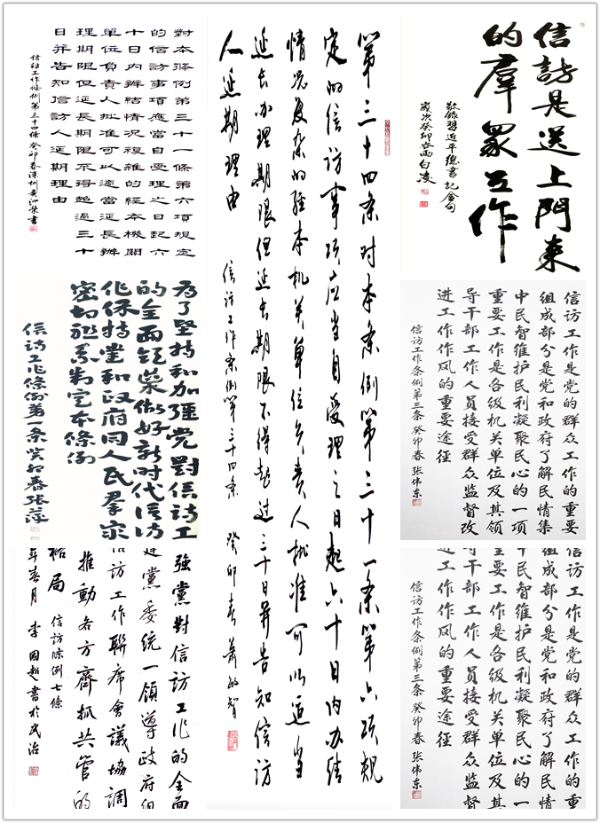 對本條例第三十一條第六項規定
的信訪事項應當自受理之日起六
十日內辦結情況複雜的經本機關
單位負責人批准可以適當延長辦
理期限但延長期限不得超過三十
日并告知信訪人延期理由
信訪工作條例第三十四條 癸卯春深圳黃江榮書
第三十四条对本条例第三十一条第六项规
定的信访事项应当自受理之日起六十日内办结
情况复杂的经本机关单位负责人批准可以适当
延长办理期限但延长期限不得超过三十日并告知信访
人延期理由
信访工作条例第三十四条 癸卯春
信訪是送上門来
的羣眾工作
敬錄習近平總書記金句
歲次癸卯谷雨白凌
為了堅持和加强党對信訪工
的全面領導做好新時代信访
作保持党和政府同人民羣众
密切联系制定本條例
信访工作條例第一條癸卯春張萍
信访工作是党的群众工作的重要
组成部分是党和政府了解民情集
中民智维护民利凝聚民心的一项
重要工作是各级机关单位及其领
导干部工作人员接受群众监督改
进工作作风的重要途径
信访工作条例第三条 癸卯春 张伟东
強黨對信訪工作的全面
黨委統一領導政府組
信訪工作聯席會議協調
推動各方齊抓共管的
格局
信访條例七條
年春月 李国 書於武治
信访工作是党的群众工作的重
组成部分是党和政府了解民情
中民智维护民利凝聚民心的一
重要工作是各级机关单位及其
导干部工作人员接受群众监督
进工作作风的重要途径
信访工作条例第三条 癸卯春 张伟东